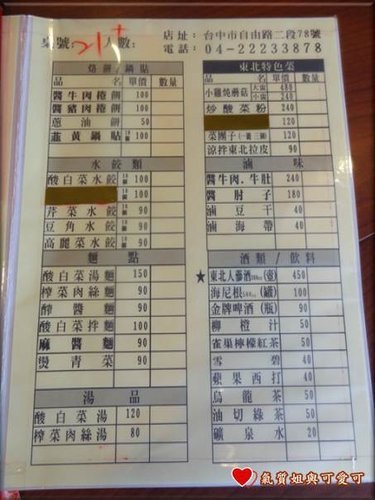 桌號：21+ 人數：
店址：台中市自由路二段78號
電話：04-22233878
烙餅/鍋貼
品名 單價 數量
醬牛肉捲餅 100
醬豬肉捲餅 100
蔥油餅 50
韮黃鍋貼 100
水餃類
酸白菜水餃 100
芹菜水餃 90
豆角水餃 90
高麗菜水餃 90
麵點
酸白菜湯麵 150
榨菜肉絲麵 90
酢醬麵 90
酸白菜拌麵 100
麻醬麵 90
燙青菜 90
湯品
酸白菜湯 120
榨菜肉絲湯 80
東北特色菜
品名 單價 數量
小雞燉蘑菇 大 480
小 240
炒酸菜粉 240
120
菜團子 120
涼拌東北拉皮 90
滷味
醬牛肉.牛肚 240
醬肘子 180
滷豆干 40
滷海帶 40
酒類/飲料
★東北人蔘酒 (壺) 450
海尼根 (罐) 100
金牌啤酒(瓶) 90
柳橙汁 50
雀巢檸檬紅茶 50
雪碧 40
蘋果西打 40
烏龍茶 50
油切綠茶 50
礦泉水 20
氣質妞與可愛可